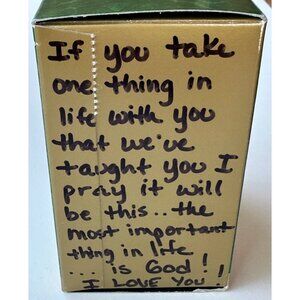 If you take
one thing in
life with you
that we've
taught you I
pray it will
be this.. the
most important
thing in life
... is God!!
I LOVE YOU.